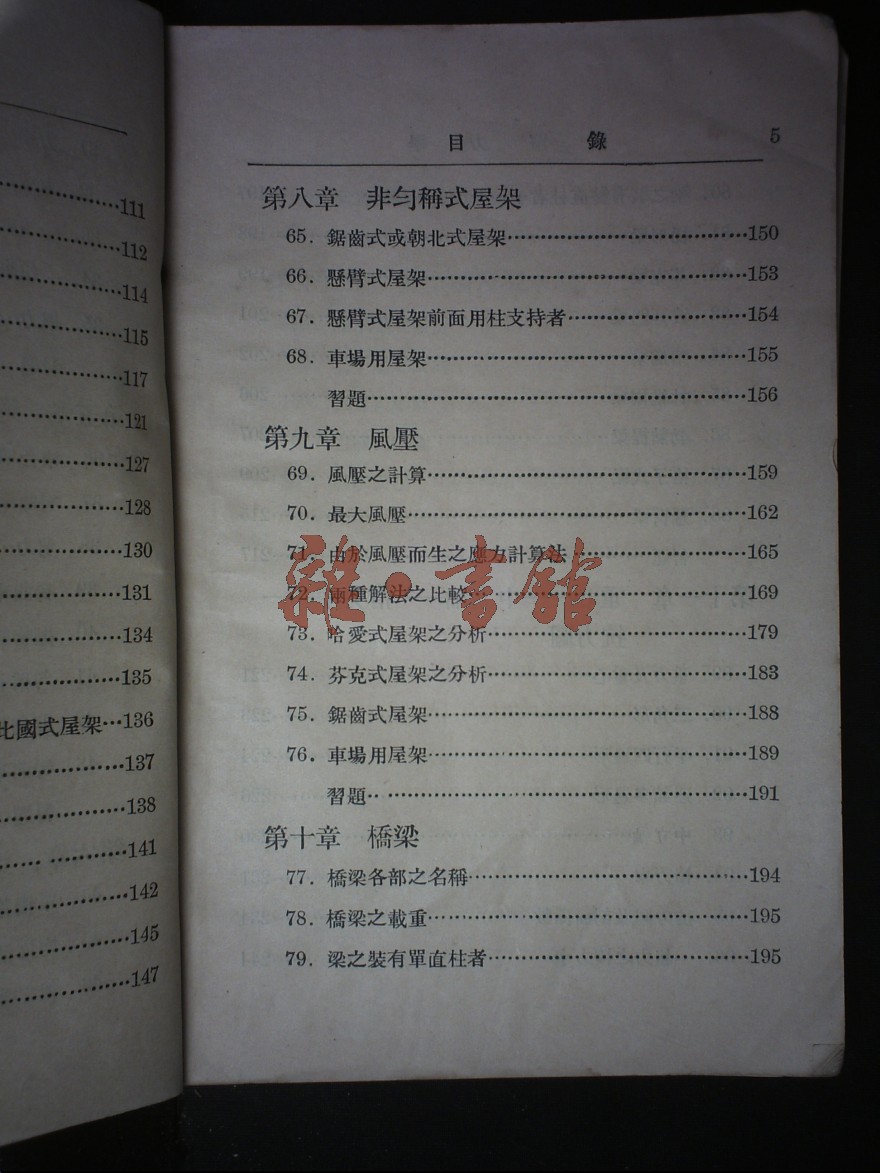 111
112
114
115
117
121
127
128
130
131
134
135
比國式屋架…136
137
138
141
142
145
147
目錄 5
第八章 非匀稱式屋架
65. 鋸齒式或朝北式屋架…150
66. 懸臂式屋架…153
67. 懸臂式屋架前面用柱支持者…154
68. 車場用屋架…155
習題…156
第九章 風壓
69. 風壓之計算…159
70. 最大風壓…162
71. 由於風壓而生之應力計算法…165
72. 兩種解法之比較…169
73. 哈愛式屋架之分析…179
74. 芬克式屋架之分析…183
75. 鋸齒式屋架…188
76. 車場用屋架…189
習題…191
第十章 橋梁
77. 橋梁各部之名稱…194
78. 橋梁之載重…195
79. 梁之裝有單直柱者…195
雜·書館